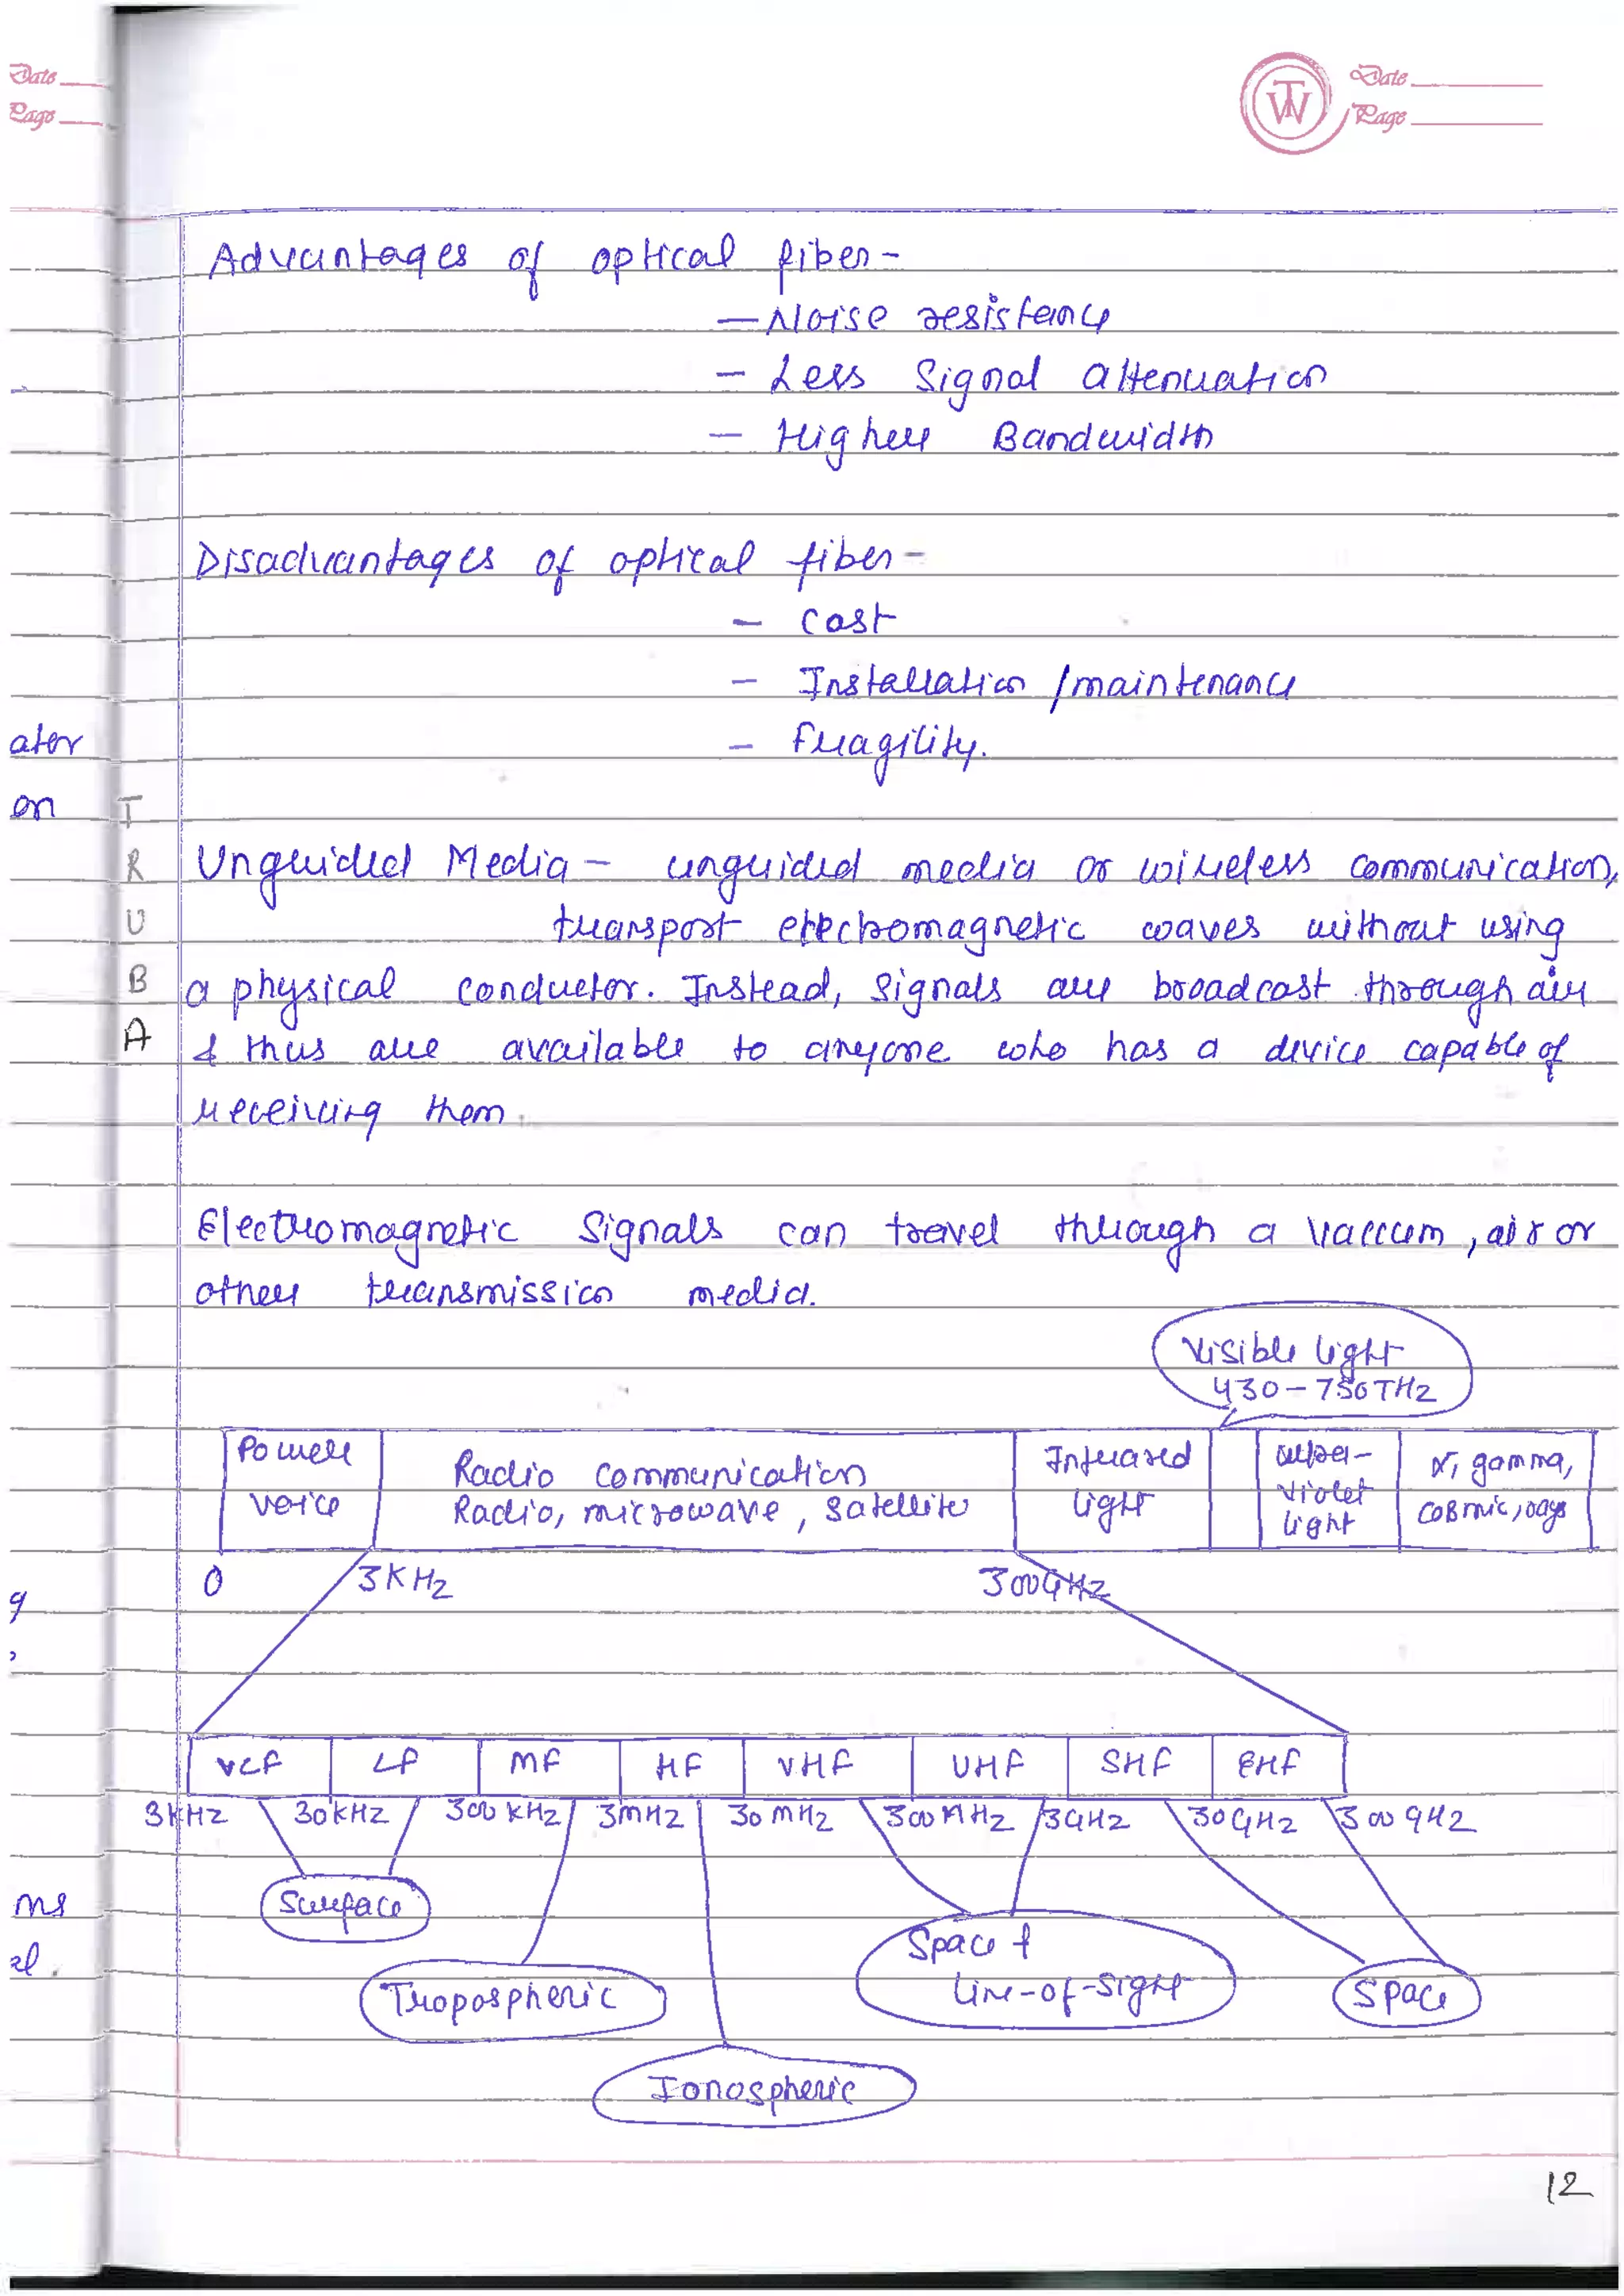 Date
Page
Date
Page
Advantages of optical fiber -
— Noise resistance
- Less Signal attenuation
- Higher Bandwidth
Disadvantages of optical fiber -
- Cost
- Installation /maintenance
- Fragility.
ator
on
T
R
U
B
A
Unguided Media - unguided media or wireless communication,
transport electromagnetic waves without using
a physical conductor. Instead, Signals are broadcast through air
& thus are available to anyone who has a device capable of
receiving them.
Electromagnetic Signals can travel through a vaccum, air or
other transmission media.
Visible light
430-750THz
Power voice
Radio communication
Radio, microwave, Satellite
Infrared light
ultra-violet light
X, gamma, cosmic, rays
0 3KHz 300GHz
VLF LF MF HF VHF UHF SHF EHF
3KHz 30KHz 300KHz 3MHz 30MHz 300MHz 3GHz 30GHz 300GHz
ms
Surface
Space &
Line-of-Sight
Tropospheric
Space
Ionospheric
12